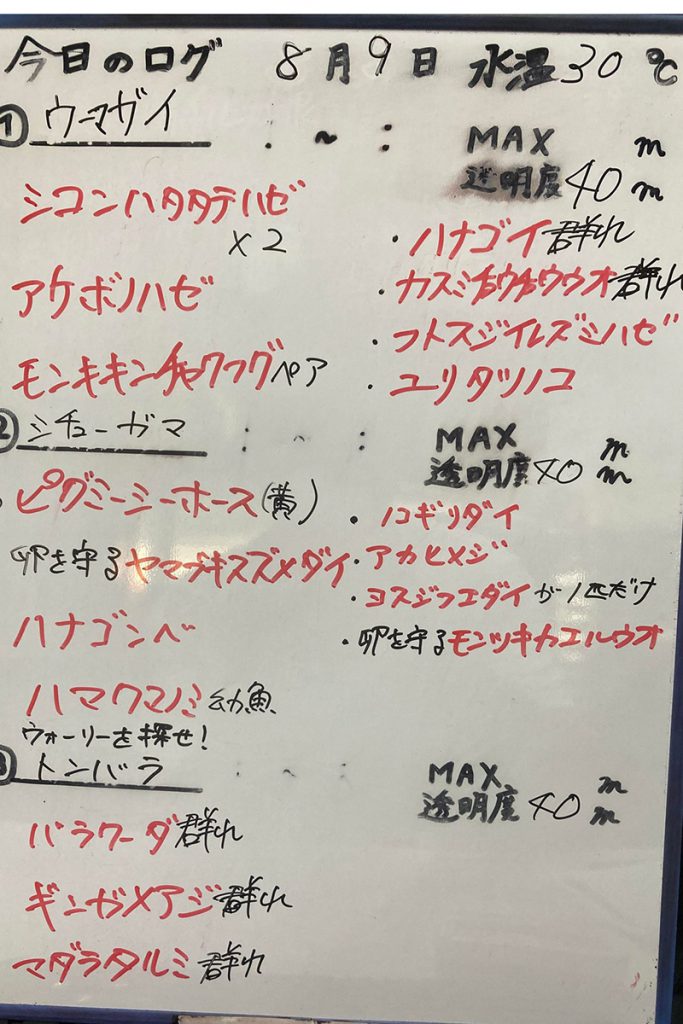 今日のログ 8月9日 水温30℃
① ウーマガイ : ~ : MAX m
透明度40m
シコンハタタテハゼ
×2
アケボノハゼ
モンキキンチャクフグペア
・ハナゴイ群れ
・カスミチョウチョウウオ群れ
・フトスジイレズミハゼ
・ユリタツノコ
② シチューガマ : ~ : MAX m
透明度40m
・ピグミーシーホース(黄)
卵を守るヤマブキスズメダイ
ハナゴンベ
ハマクマノミ幼魚
ウォーリーを探せ!
・ノコギリダイ
・アカヒメジ
・ヨスジフエダイが1匹だけ
・卵を守るモンツキカエルウオ
③ トンバラ : ~ : MAX m
透明度40m
バラクーダ群れ
ギンガメアジ群れ
マダラタルミ群れ